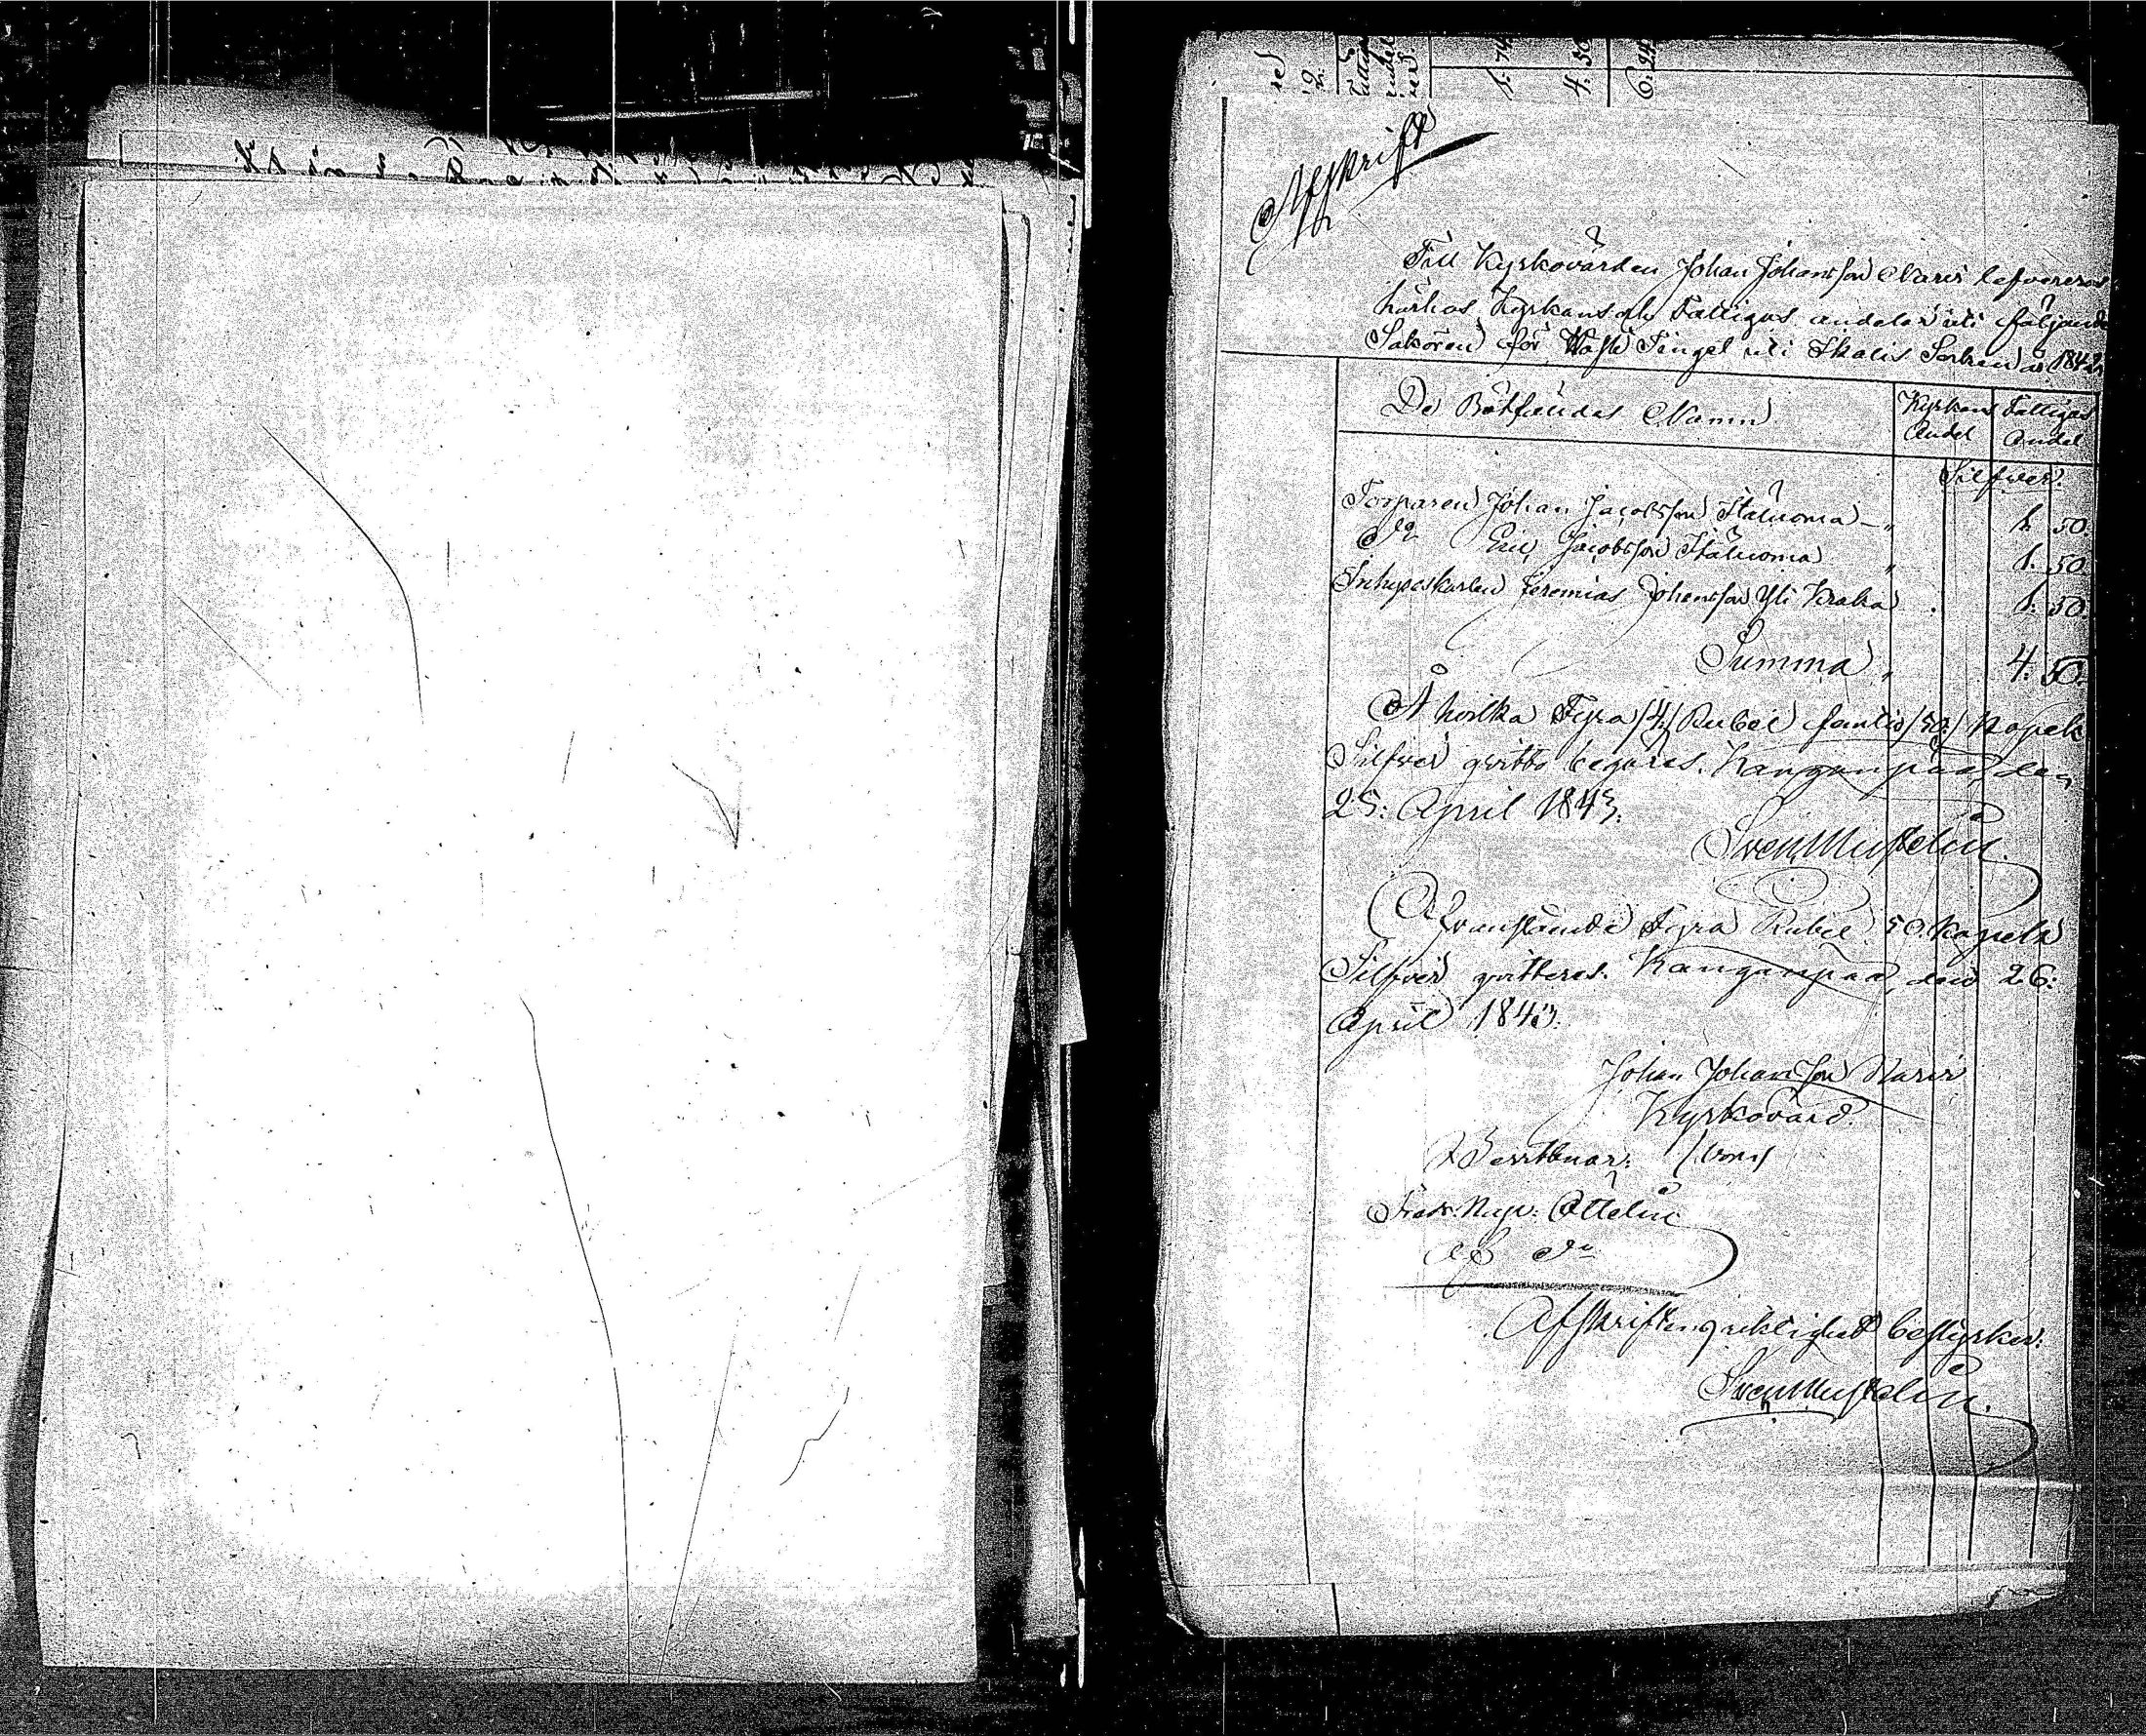 1: 74.
4: 50
6: 24.
Afskrift
Till Kyrkovärden Johan Johansson Naris lefvereras
härhos Kyrkans och Fattigas andelar uti följande
Saköron för Höste Tinget uti Ikalis Socken år 1842
De Bötfäldas Namn
Kyrkans Andel
Fattigas Andel
Silfver.
Torparen Johan Jacobsson Itäluoma — " 1. 50.
Do Eric Jacobsson Itäluoma " 1. 50.
Inhyseskarlen Jeremias Johansson Yli Kraka . 1. 50.
Summa " 4. 50.
Å hvilka Fyra /4/ Rubel femtio /50/ Kopek
Silfver qvitto begäres. Kanganpää, den
25: April 1843.
Sven Mustelin.
Ofvanstående Fyra Rubel 50. Kopek
Silfver qvitteras. Kanganpää, den 26:
April 1843.
Johan Johansson Naris
Kyrkovärd.
Bevittnar:
Ottelin
Afskriftens riktighet bestyrker:
Sven Mustelin.